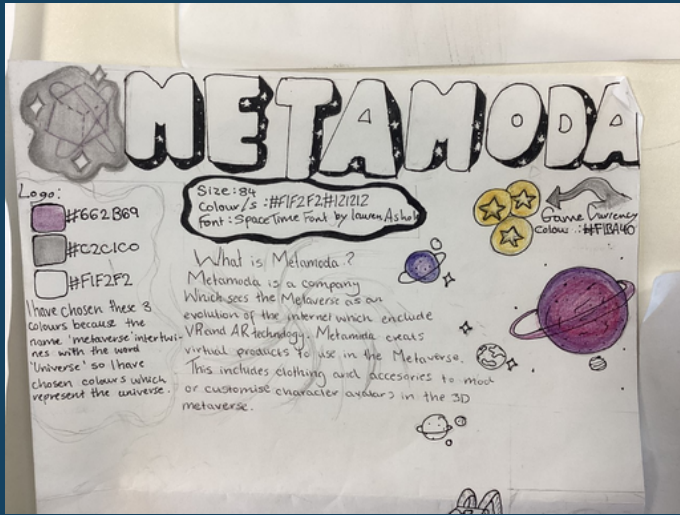 METAMODA
Logo:
#662B69
#C2C1C0
#F1F2F2
I have chosen these 3
colours because the
name 'metaverse' intertwi-
nes with the word
'Universe' so I have
chosen colours which
represent the universe.
Size: 84
Colour/s : #F1F2F2 #121212
Font: SpaceTime Font by Lauren
Game Currency
Colour :#F1BA40
What is Metamoda?
Metamoda is a company
Which sees the Metaverse as an
evolution of the internet which enclude
VR and AR technology. Metamida creats
virtual products to use in the Metaverse.
This includes clothing and accesories to mod
or customise character avatars in the 3D
metaverse.